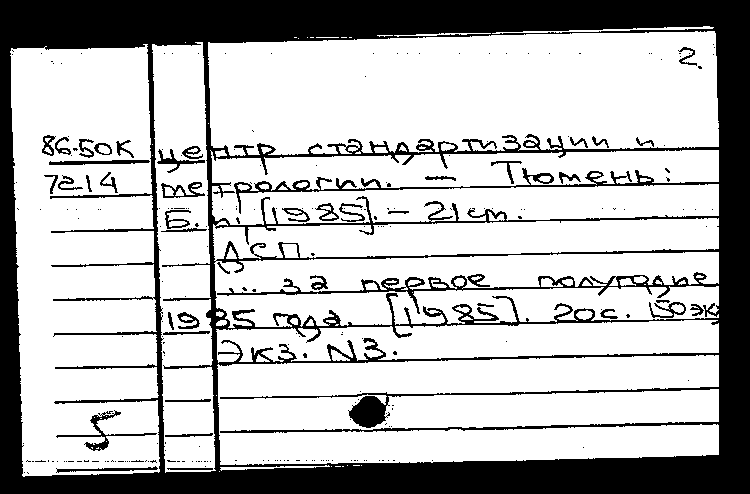 2.
86-50К центр стандартизации и
7214 метрологии. — Тюмень:
Б. и., [1985]. - 21 см.
ДСП.
... за первое полугодие
1985 года. [1985]. 20с. 150 эк
Экз. N3.
5